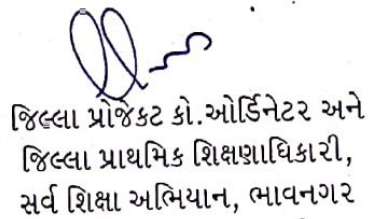 જિલ્લા પ્રોજેકટ કો.ઓર્ડિનેટર અને
જિલ્લા પ્રાથમિક શિક્ષણાધિકારી,
સર્વ શિક્ષા અભિયાન, ભાવનગર